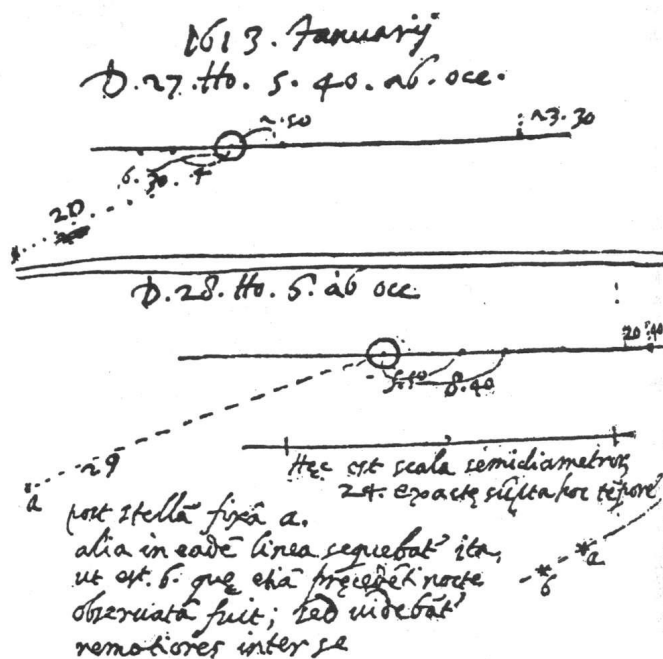 1613. Januarij
D. 27. Ho. 5. 40. ab. occ.
2.50
23.30
6. 30. 4
20.
D. 28. Ho. 5. ab occ
20.40
5.10 8.40
29
a
Hęc est scala semidiametroȝ
24. exactę sūpta hoc tēpore
post stellā fixā a.
alia in eadē linea sequebat' ita,
ut est. b. quę etiā pręcedēti nocte
a
b
observata fuit; sed videbāt'
remotiores inter se